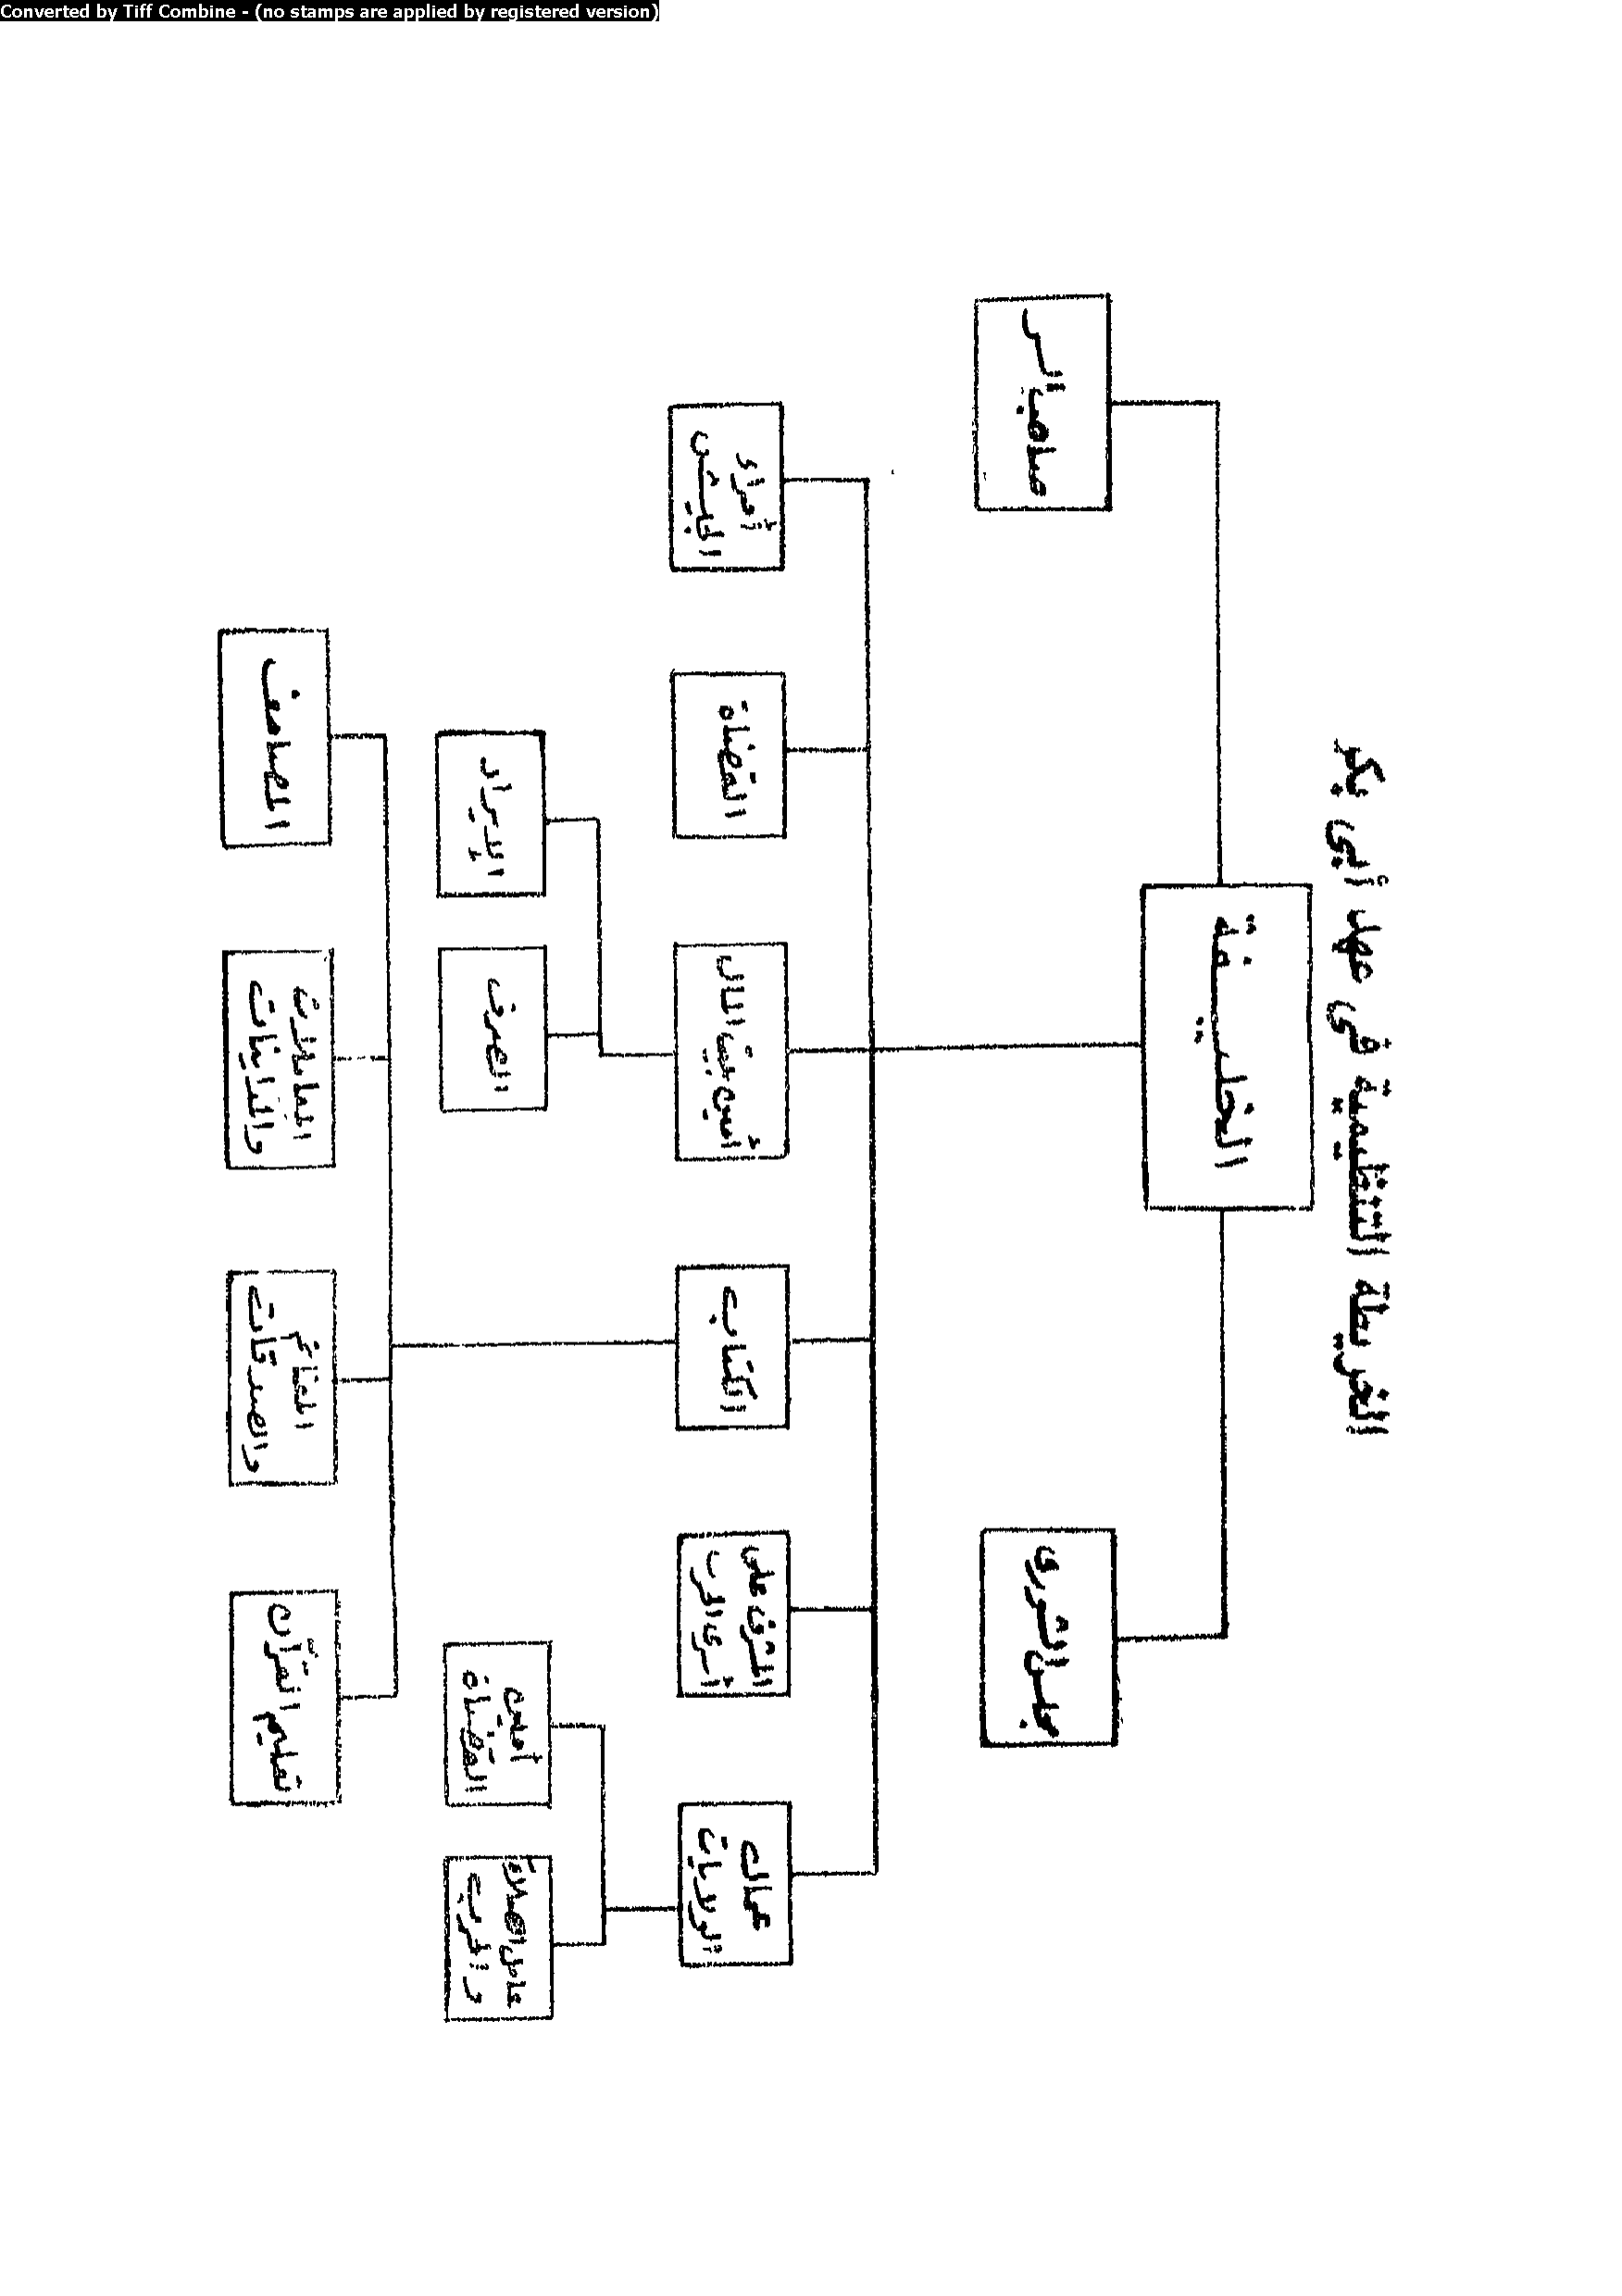 Converted by Tiff Combine - (no stamps are applied by registered version)
الخريطة التنظيمية في عهد أبي بكر
الخليفة
مجلس الشورى
صاحب السر
عمال
الولايات
المشرف على
أسرى الحرب
الكتاب
أمين بيت المال
القضاة
أمراء
الجيش
عامل الصلاة
والحرب
أمين
القضاة
الصرف
الإيراد
تعليم القرآن
المغانم
والصدقات
المعاملات
والمداينات
المصاحف